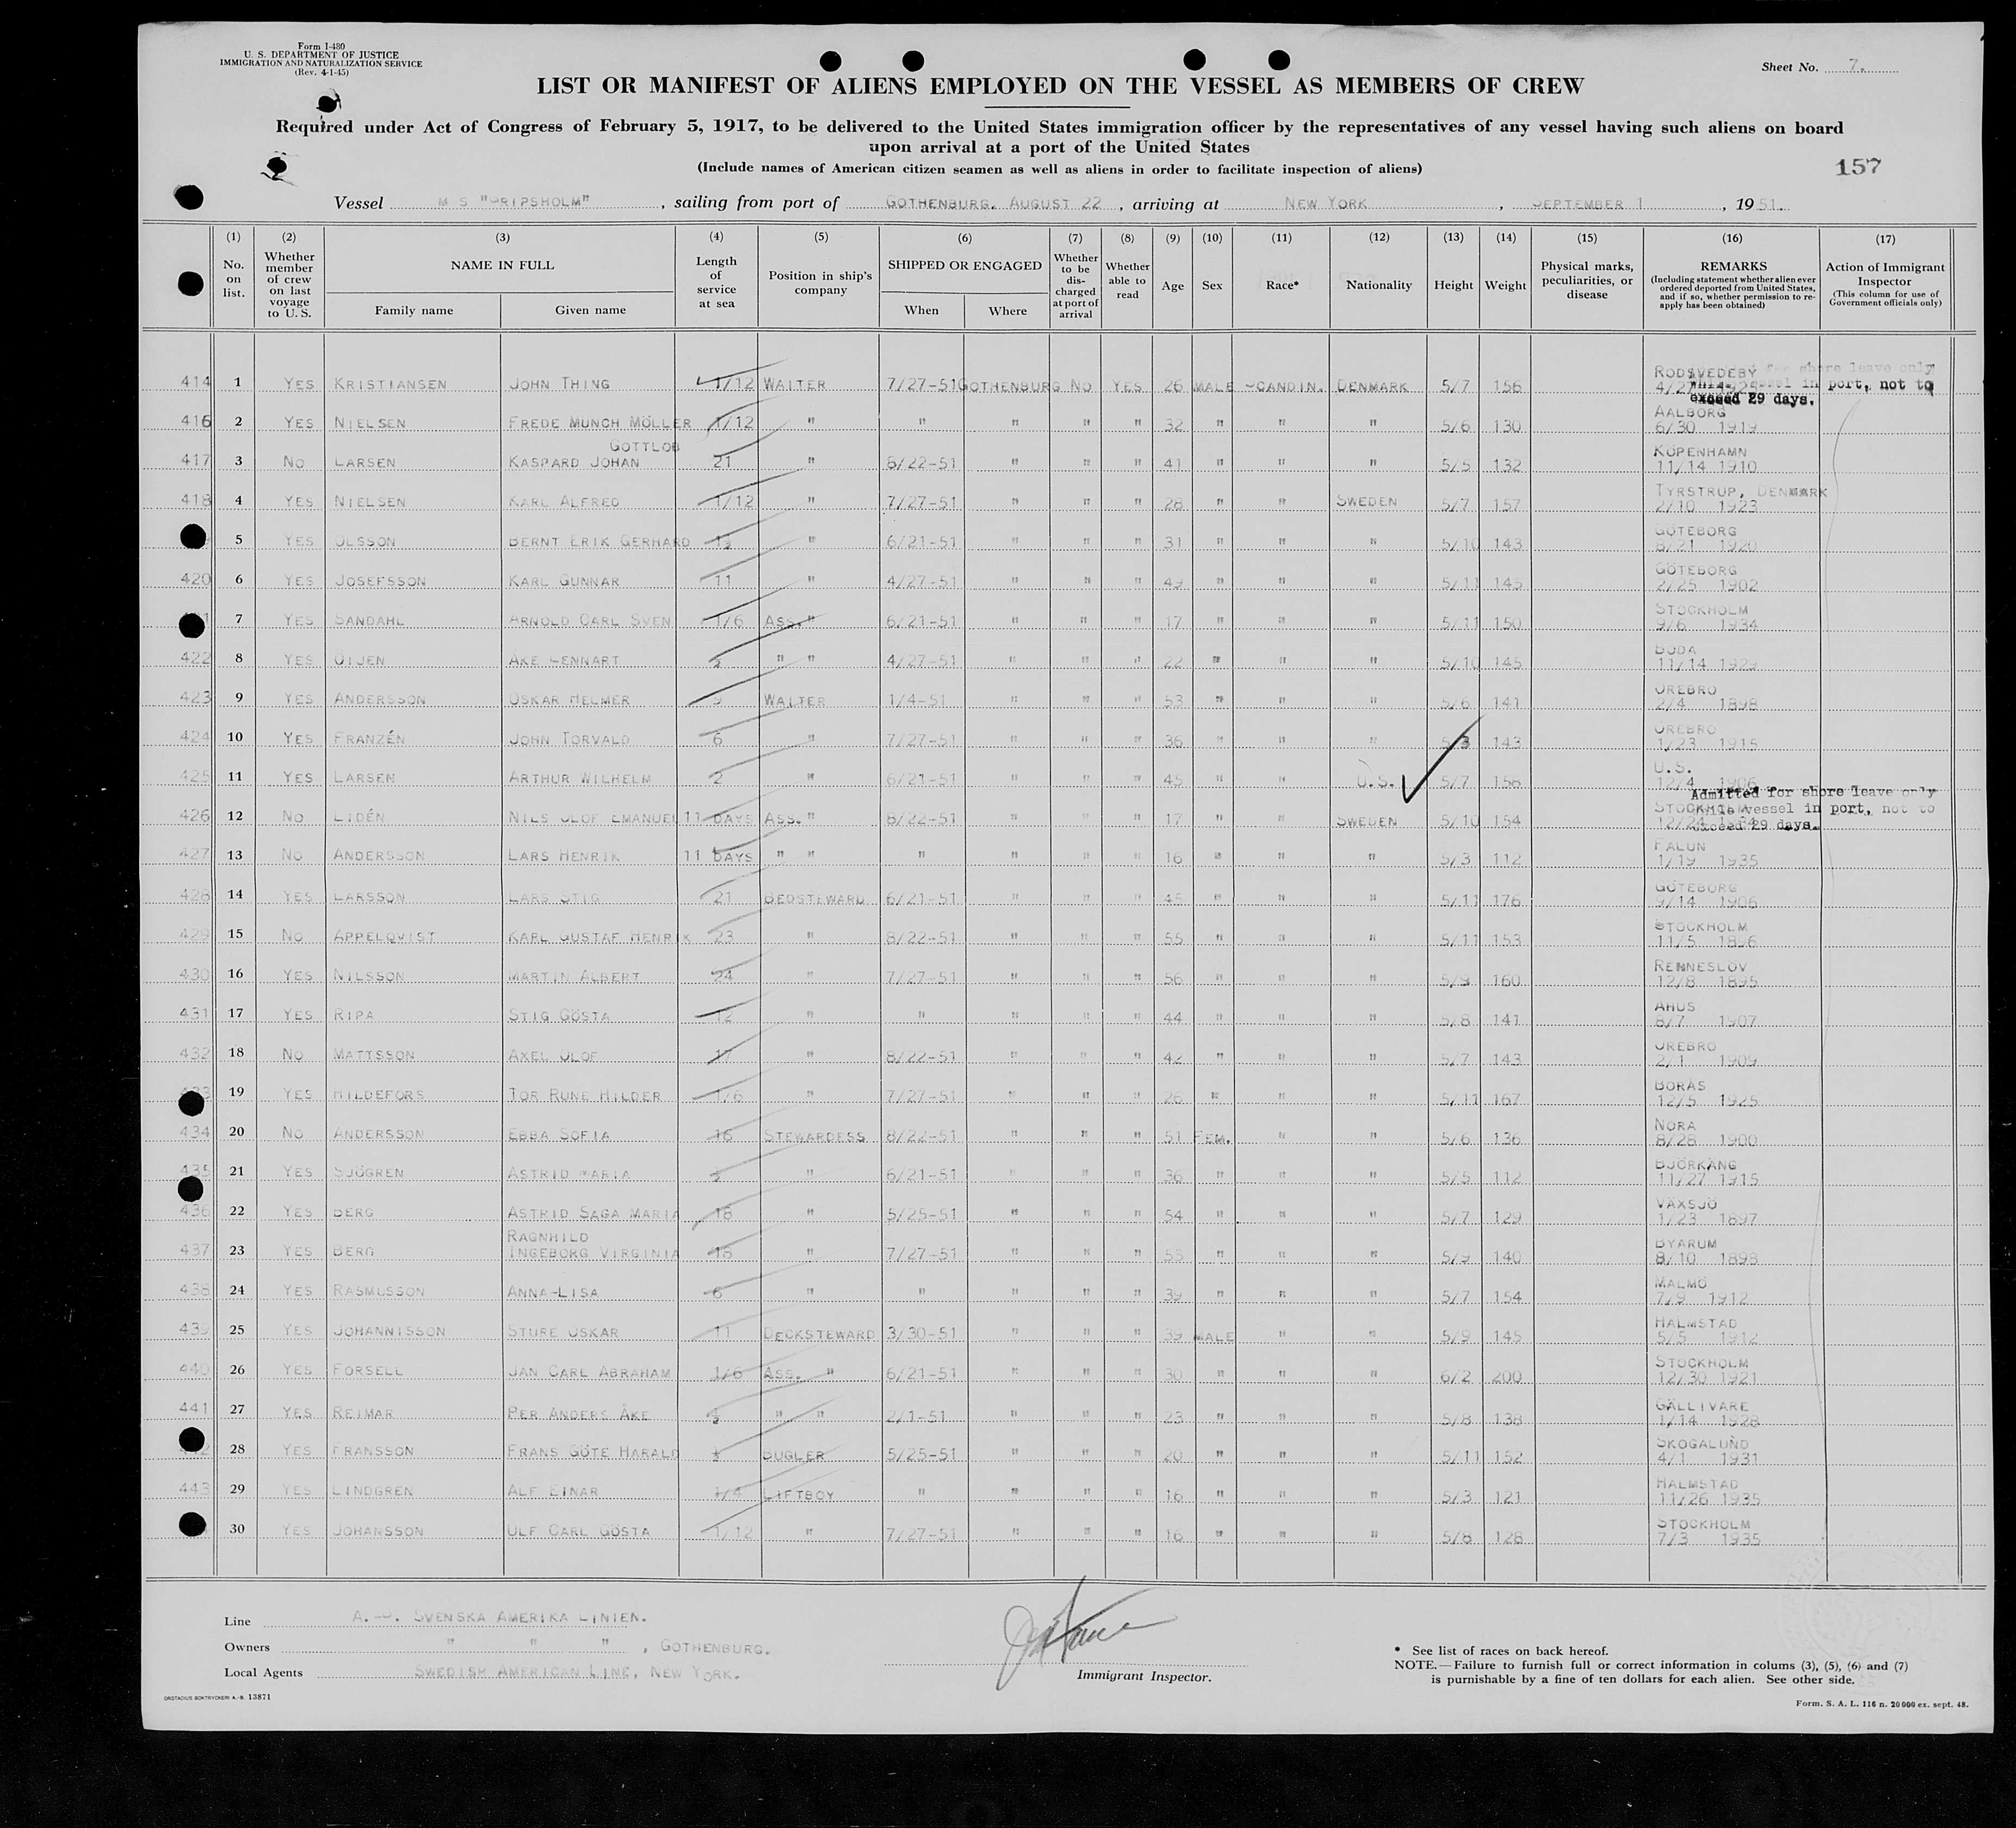 Form I-480
U. S. DEPARTMENT OF JUSTICE
IMMIGRATION AND NATURALIZATION SERVICE
(Rev. 4-1-45)
Sheet No. 7.
LIST OR MANIFEST OF ALIENS EMPLOYED ON THE VESSEL AS MEMBERS OF CREW
Required under Act of Congress of February 5, 1917, to be delivered to the United States immigration officer by the representatives of any vessel having such aliens on board
upon arrival at a port of the United States
(Include names of American citizen seamen as well as aliens in order to facilitate inspection of aliens)
157
Vessel M S "GRIPSHOLM", sailing from port of GOTHENBURG, AUGUST 22, arriving at NEW YORK, SEPTEMBER 1, 1951.
(1) No. on list.
(2) Whether member of crew on last voyage to U. S.
(3) NAME IN FULL
Family name
Given name
(4) Length of service at sea
(5) Position in ship's company
(6) SHIPPED OR ENGAGED
When
Where
(7) Whether to be discharged at port of arrival
(8) Whether able to read
(9) Age
(10) Sex
(11) Race*
(12) Nationality
(13) Height
(14) Weight
(15) Physical marks, peculiarities, or disease
(16) REMARKS
(Including statement whether alien ever ordered deported from United States, and if so, whether permission to reapply has been obtained)
(17) Action of Immigrant Inspector
(This column for use of Government officials only)
414 1 YES KRISTIANSEN JOHN THING 1/12 WAITER 7/27-51 GOTHENBURG NO YES 26 MALE SCANDIN. DENMARK 5/7 156 RODSVEDEBY
for shore leave only
vessel in port, not to
exceed 29 days.
416 2 YES NIELSEN FREDE MUNCH MÖLLER 1/12 " " " " " 32 " " " 5/6 130 AALBORG 6/30 1919
417 3 NO LARSEN KASPARD JOHAN GOTTLOB 21 " 8/22-51 " " " 41 " " " 5/5 132 KÖPENHAMN 11/14 1910
418 4 YES NIELSEN KARL ALFRED 1/12 " 7/27-51 " " " 28 " " SWEDEN 5/7 157 TYRSTRUP, DENMARK 2/10 1923
5 YES OLSSON BERNT ERIK GERHARD " 6/21-51 " " " 31 " " " 5/10 143 GÖTEBORG 8/21 1920
420 6 YES JOSEFSSON KARL GUNNAR 11 " 4/27-51 " " " 49 " " " 5/11 145 GÖTEBORG 2/25 1902
7 YES SANDAHL ARNOLD CARL SVEN 1/6 ASS. " 6/21-51 " " " 17 " " " 5/11 150 STOCKHOLM 9/6 1934
422 8 YES ÖIJEN ÅKE LENNART " " 4/27-51 " " " 22 " " " 5/10 145 BODA 11/14 1929
423 9 YES ANDERSSON OSKAR HELMER WAITER 1/4-51 " " " 53 " " " 5/6 141 ÖREBRO 2/4 1898
424 10 YES FRANZÉN JOHN TORVALD 6 " 7/27-51 " " " 36 " " " 5/3 143 ÖREBRO 1/23 1915
425 11 YES LARSEN ARTHUR WILHELM 2 " 6/21-51 " " " 45 " " U.S. 5/7 156 U.S. 12/4 1906
Admitted for shore leave only
while vessel in port, not to
exceed 29 days.
426 12 NO LIDÉN NILS OLOF EMANUEL 11 DAYS ASS. " 8/22-51 " " " 17 " " SWEDEN 5/10 154 STOCKHOLM
427 13 NO ANDERSSON LARS HENRIK 11 DAYS " " " " " " 16 " " " 5/3 112 FALUN 1/19 1935
428 14 YES LARSSON LARS STIG 21 BEDSTEWARD 6/21-51 " " " 45 " " " 5/11 176 GÖTEBORG 9/14 1906
429 15 NO APPELQVIST KARL GUSTAF HENRIK 23 " 8/22-51 " " " 55 " " " 5/11 153 STOCKHOLM 11/5 1896
430 16 YES NILSSON MARTIN ALBERT 24 " 7/27-51 " " " 56 " " " 5/9 160 RENNESLÖV 12/8 1895
431 17 YES RIPA STIG GÖSTA 12 " " " " " 44 " " " 5/8 141 ÅHUS 8/7 1907
432 18 NO MATTSSON AXEL OLOF 17 " 8/22-51 " " " 42 " " " 5/7 143 ÖREBRO 2/1 1909
19 YES HILDEFORS TOR RUNE HILDER 1/6 " 7/27-51 " " " 26 " " " 5/11 167 BORÅS 12/5 1925
434 20 NO ANDERSSON EBBA SOFIA 16 STEWARDESS 8/22-51 " " " 51 FEM. " " 5/6 136 NORA 8/28 1900
435 21 YES SJÖGREN ASTRID MARIA " 6/21-51 " " " 36 " " " 5/5 112 BJÖRKÄNG 11/27 1915
436 22 YES BERG ASTRID SAGA MARIA 18 " 5/25-51 " " " 54 " " " 5/7 129 VÄXSJÖ 1/23 1897
437 23 YES BERG RAGNHILD INGEBORG VIRGINIA 18 " 7/27-51 " " " 53 " " " 5/9 140 BYARUM 8/10 1898
438 24 YES RASMUSSON ANNA-LISA 6 " " " " " 39 " " " 5/7 154 MALMÖ 7/9 1912
439 25 YES JOHANNISSON STURE OSKAR 11 DECKSTEWARD 3/30-51 " " " 39 MALE " " 5/9 145 HALMSTAD 5/5 1912
440 26 YES FORSELL JAN CARL ABRAHAM 1/6 ASS. " 6/21-51 " " " 30 " " " 6/2 200 STOCKHOLM 12/30 1921
441 27 YES REIMAR PER ANDERS ÅKE " " 2/1-51 " " " 23 " " " 5/8 138 GÄLLIVARE 1/14 1928
28 YES FRANSSON FRANS GÖTE HARALD BUGLER 5/25-51 " " " 20 " " " 5/11 152 SKOGALUND 4/1 1931
443 29 YES LINDGREN ALF EINAR 1/4 LIFTBOY " " " " 16 " " " 5/3 121 HALMSTAD 11/26 1935
30 YES JOHANSSON ULF CARL GÖSTA 1/12 " 7/27-51 " " " 16 " " " 5/8 128 STOCKHOLM 7/3 1935
Line A.-B. SVENSKA AMERIKA LINIEN.
Owners " " ", GOTHENBURG.
Local Agents SWEDISH AMERICAN LINE, NEW YORK.
Immigrant Inspector.
* See list of races on back hereof.
NOTE.—Failure to furnish full or correct information in colums (3), (5), (6) and (7)
is purnishable by a fine of ten dollars for each alien. See other side.
ORSTADIUS BOKTRYCKERI A.-B. 13871
Form. S. A. L. 116 n. 20000 ex. sept. 48.